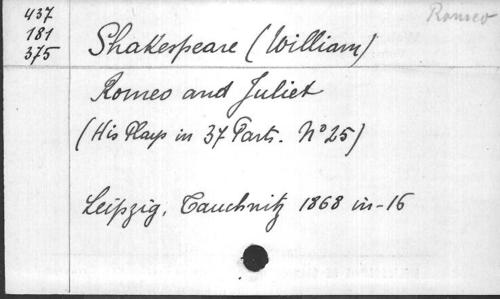 437
181
375
Romeo
Shakespeare (William)
Romeo and Juliet
(His Plays in 37 Parts. No 25)
Leipzig, Tauchnitz 1868 in-16